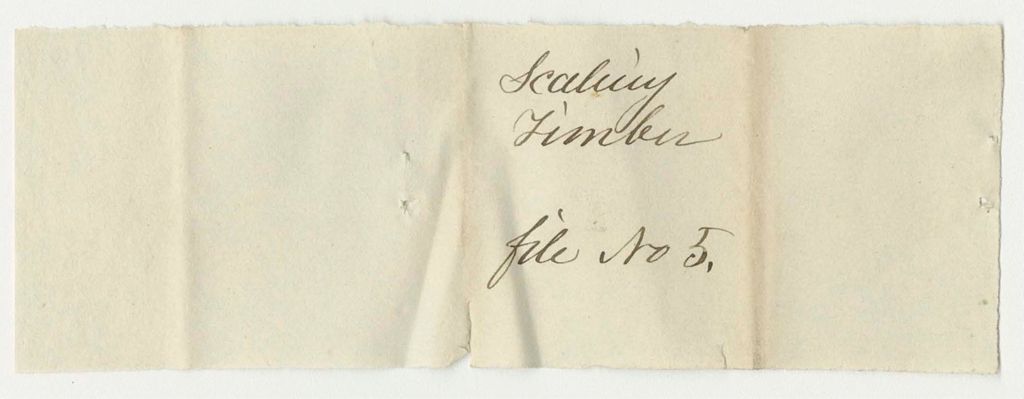 Scaling
Timber
file No 5.